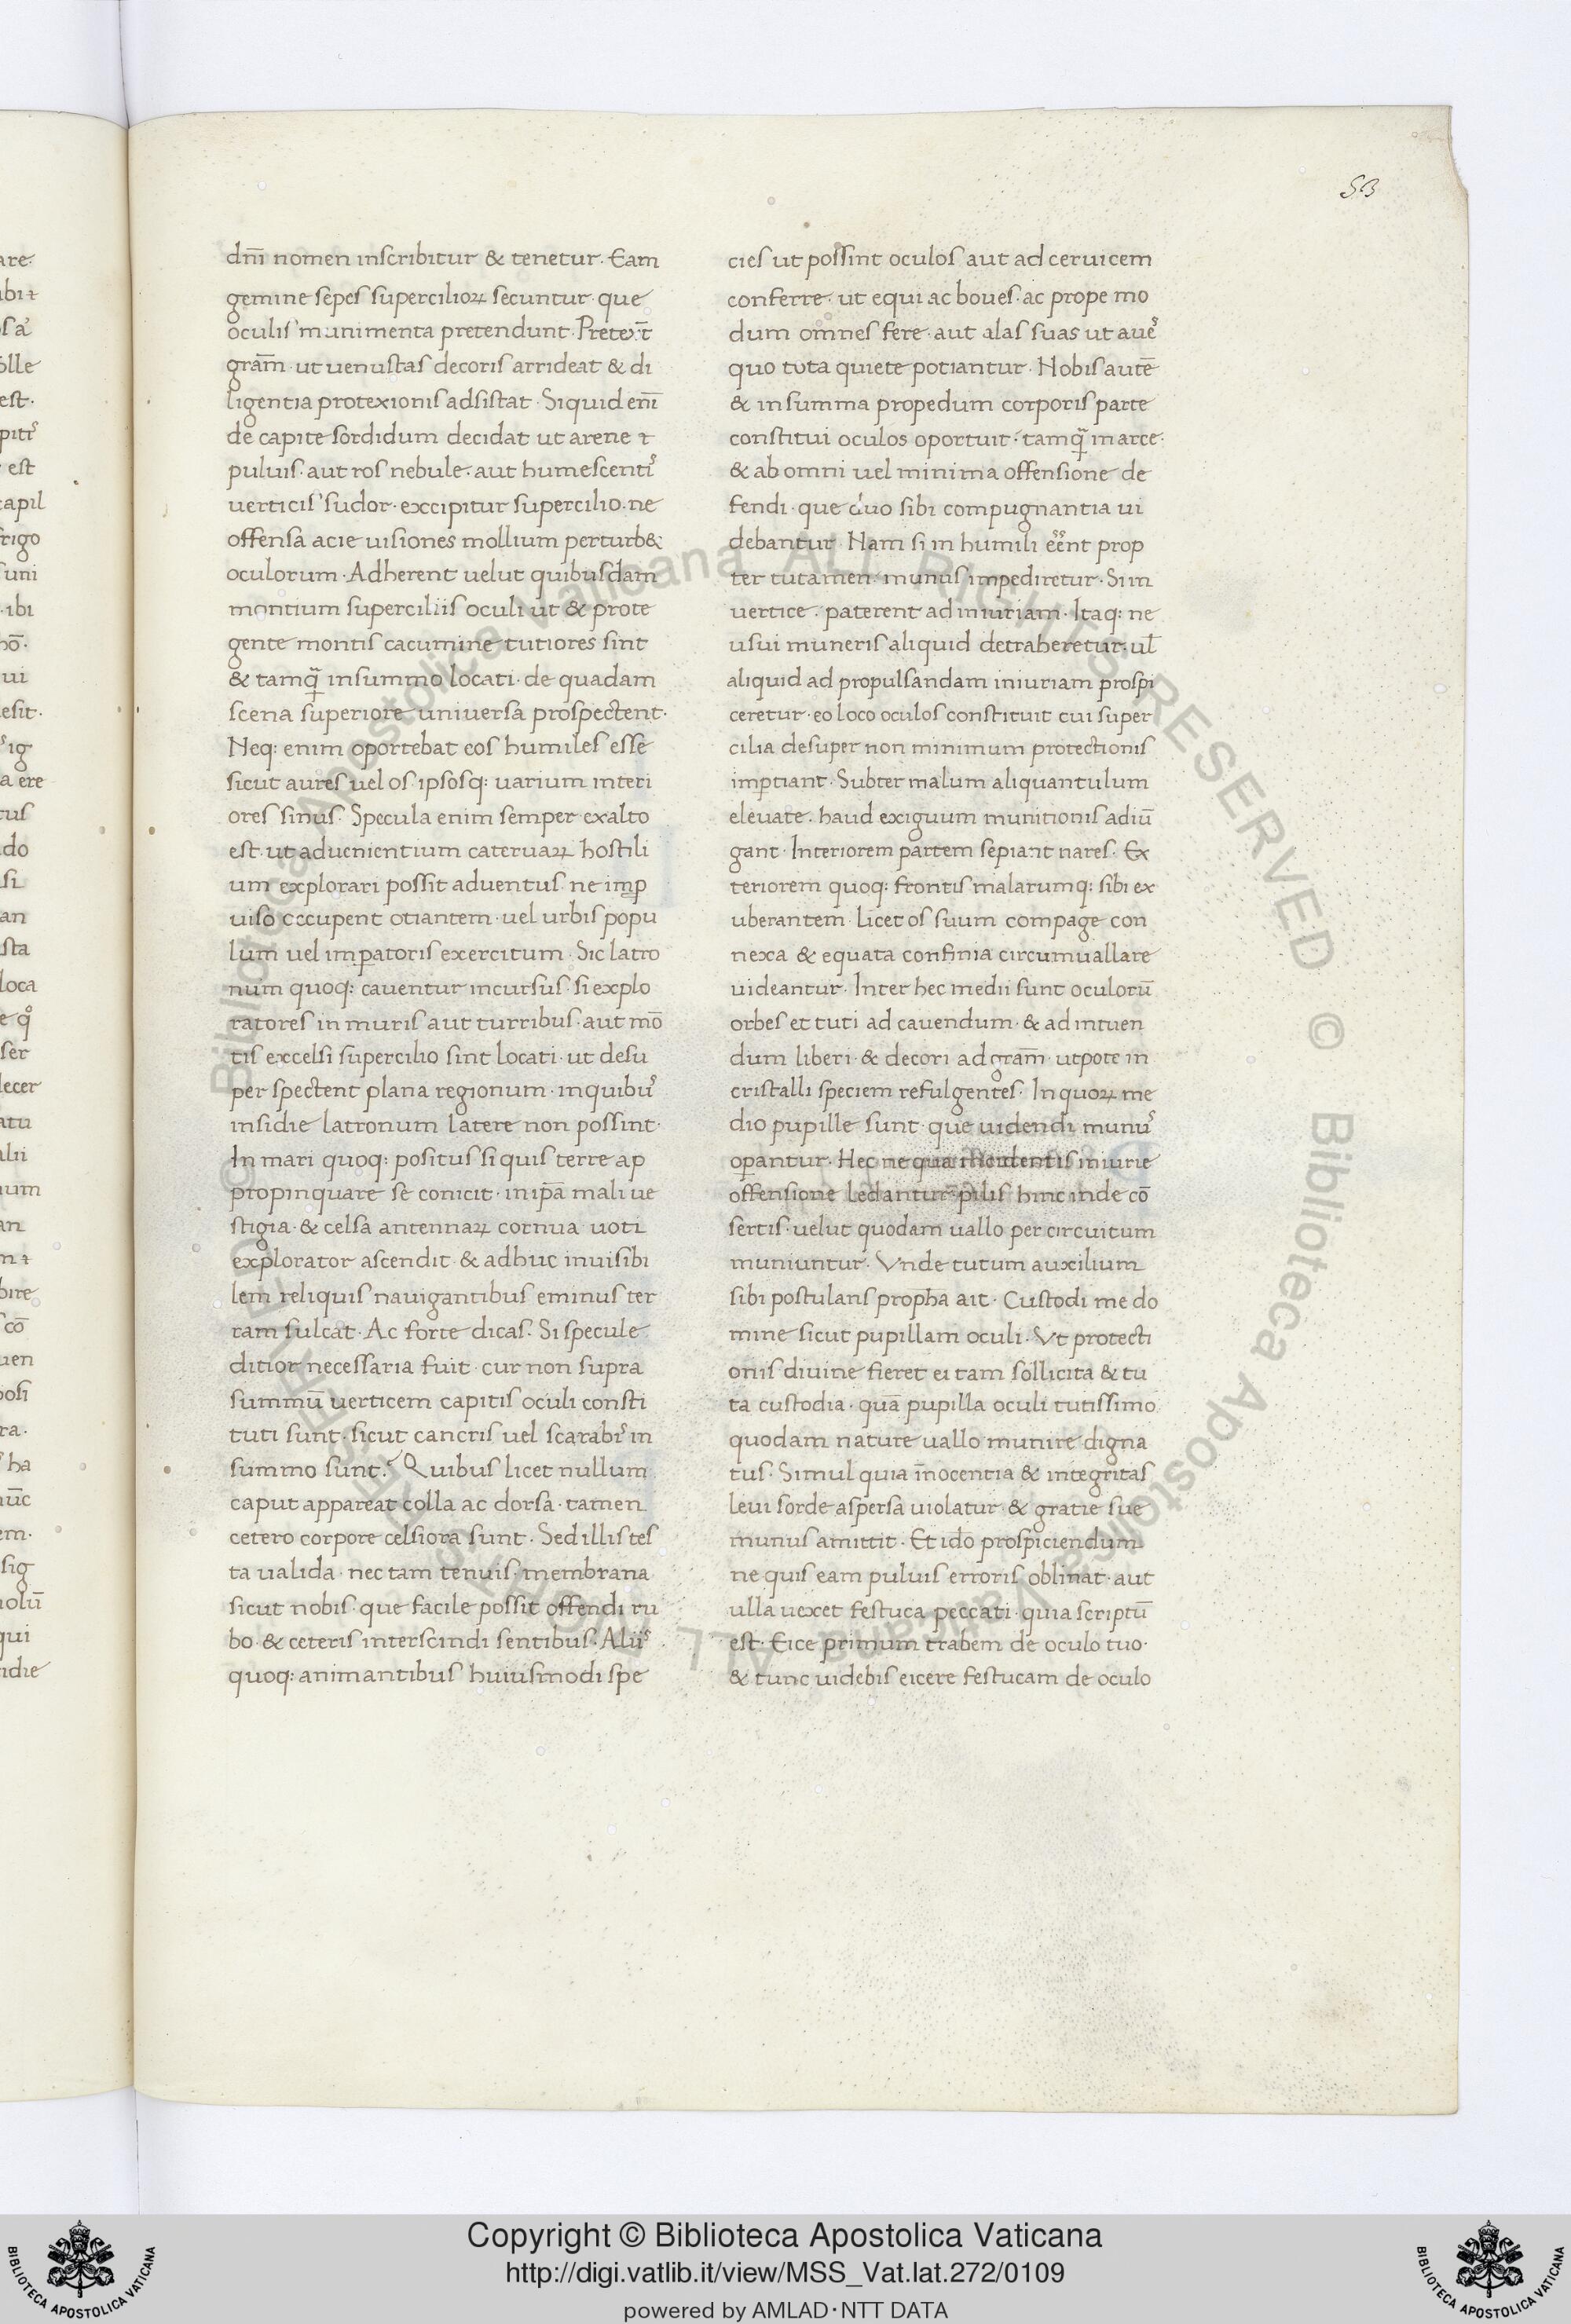 53
dn̄i nomen inscribitur & tenetur. Eam
gemine sepes supercilioꝝ secuntur. que
oculis munimenta pretendunt. Pretex̄t
grām. ut uenustas decoris arrideat & di
ligentia protexionis adsistat. Siquid eni̅
de capite sordidum decidat ut arene ⁊
puluis. aut ros nebule. aut humescentiꝰ
uerticis sudor. excipitur supercilio. ne
offensa acie uisiones mollium perturb&
oculorum. Adherent uelut quibusdam
montium superciliis oculi ut & prote
gente montis cacumine tutiores sint
& tamq̄ in summo locati. de quadam
scena superiore uniuersa prospectent.
Neq: enim oportebat eos humiles esse
sicut aures uel os. ipsosq: uarium interi
ores sinus. Specula enim semper ex alto
est. ut aduenientium cateruaꝝ hostili
um explorari possit aduentus. ne imꝓ
uiso occupent otiantem. uel urbis popu
lum uel imꝑatoris exercitum. Sic latro
num quoq: cauentur incursus. si explo
ratores in muris aut turribus. aut mo̅
tis excelsi supercilio sint locati. ut desu
per spectent plana regionum. in quibuꝰ
insidie latronum latere non possint.
In mari quoq: positus si quis terre ap
propinquare se conicit. in ip̄a mali ue
stigia. & celsa antennaꝝ cornua uoti
explorator ascendit. & adhuc inuisibi
lem reliquis nauigantibus eminus ter
ram sulcat. Ac forte dicas. Si specule
ditior necessaria fuit. cur non supra
summu̅ uerticem capitis oculi consti
tuti sunt. sicut cancris uel scarabiꝰ in
summo sunt. Quibus licet nullum
caput appareat colla ac dorsa. tamen
cetero corpore celsiora sunt. Sed illis tes
ta ualida. nec tam tenuis. membrana
sicut nobis. que facile possit offendi ru
bo. & ceteris interscindi sentibus. Aliiꝰ
quoq: animantibus huiusmodi spe
cies ut possint oculos aut ad ceruicem
conferre. ut equi ac boues. ac prope mo
dum omnes fere. aut alas suas ut aueꝰ
quo tota quiete potiantur. Nobis aute̅
& in summa propedum corporis parte
constitui oculos oportuit. tamq̄ in arce.
& ab omni uel minima offensione de
fendi. que duo sibi compugnantia ui
debantur. Nam si in humili eēnt prop
ter tutamen. munus impediretur. Si in
uertice. paterent ad iniuriam. Itaq: ne
usui muneris aliquid detraheretur. ul̄
aliquid ad propulsandam iniuriam prospi
ceretur. eo loco oculos constituit cui super
cilia desuper non minimum protectionis
imꝑtiant. Subter malum aliquantulum
eleuate. haud exiguum munitionis adiu̅
gant. Interiorem partem sepiant nares. Ex
teriorem quoq: frontis malarumq: sibi ex
uberantem. licet os suum compage con
nexa & equata confinia circumuallare
uideantur. Inter hec medii sunt oculoru̅
orbes et tuti ad cauendum. & ad intuen
dum liberi. & decori ad grām. utpote in
cristalli speciem refulgentes. In quoꝝ me
dio pupille sunt. que uidendi munuꝰ
oꝑantur. Hec ne qua incidentis iniurie
offensione ledantur. pilis hinc inde co̅
sertis. uelut quodam uallo per circuitum
muniuntur. Vnde tutum auxilium
sibi postulans proph̄a ait. Custodi me do
mine sicut pupillam oculi. Vt protecti
onis diuine fieret ei tam sollicita & tu
ta custodia. qua̅ pupilla oculi tutissimo
quodam nature uallo munire digna
tus. Simul quia i̅nocentia & integritas
leui sorde aspersa uiolatur. & gratie sue
munus amittit. Et ido prospiciendum
ne quis eam puluis erroris oblinat. aut
ulla uexet festuca peccati. quia scriptu̅
est. Eice primum trabem de oculo tuo.
& tunc uidebis eicere festucam de oculo
Copyright © Biblioteca Apostolica Vaticana
http://digi.vatlib.it/view/MSS_Vat.lat.272/0109
powered by AMLAD·NTT DATA